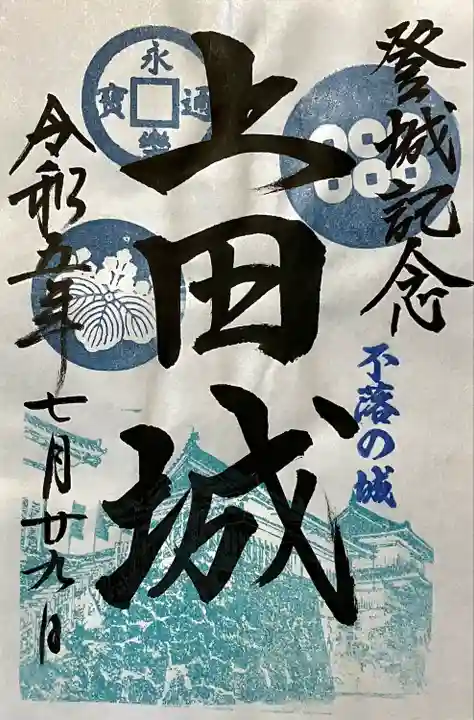 登城記念
不落の城
上田城
永樂通寳
令和五年
七月廿九日